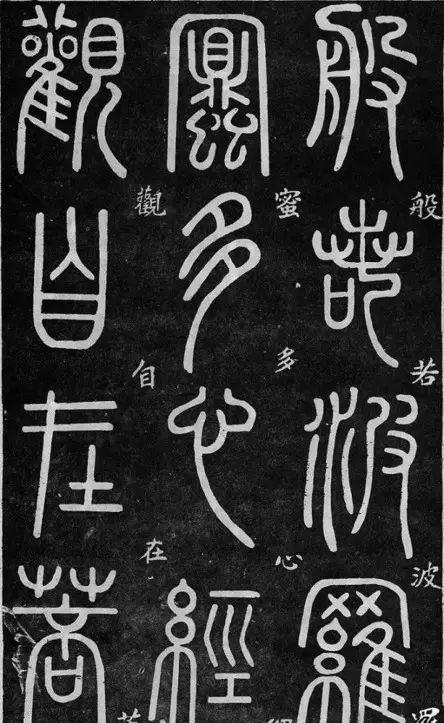 般若波羅
蜜多心經
觀自在菩
般若波羅
蜜多心經
觀自在菩